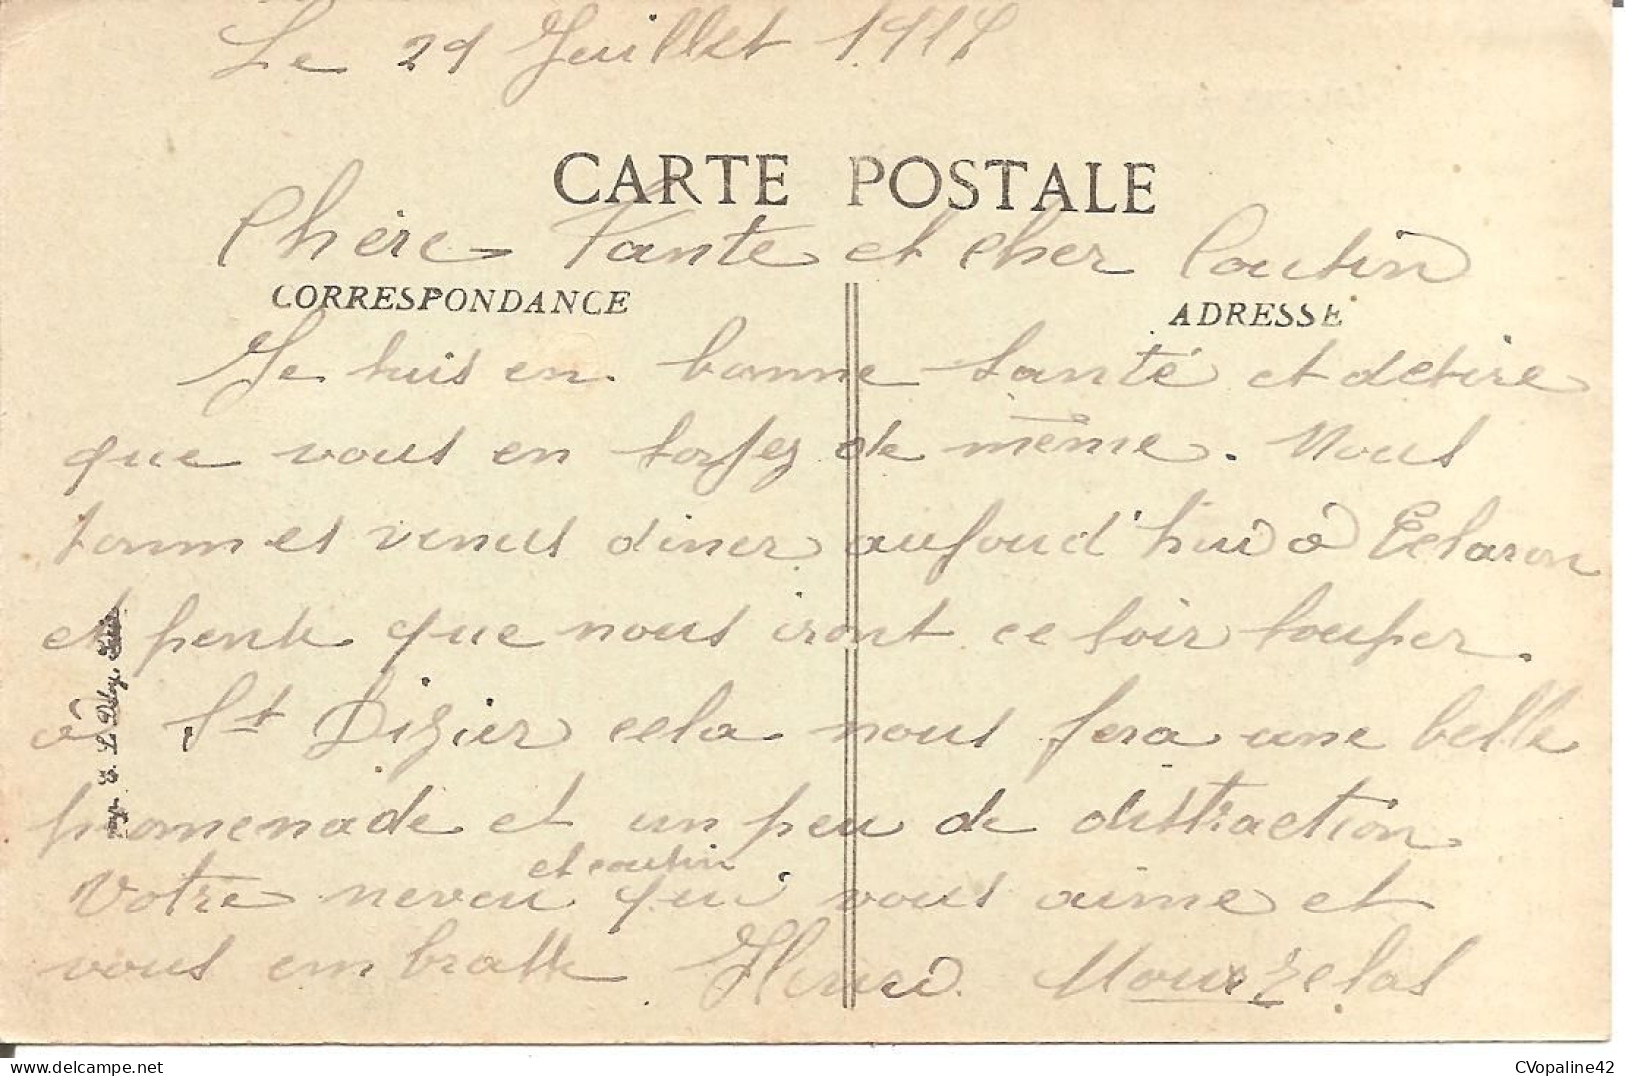 Le 29 Juillet 1917
CARTE POSTALE
Chère Tante et Cher Coutin
CORRESPONDANCE
ADRESSE
Je suis en bonne santé et desire
que vous en soyez de même. Nous
sommes venus diner aujourd'hui à Eclaron
et pense que nous iront ce soir souper
à St Dizier cela nous fera une belle
promenade et un peu de distraction
et coutin
Votre neveu qui vous aime et
vous embrasse Henri
CVopaline42